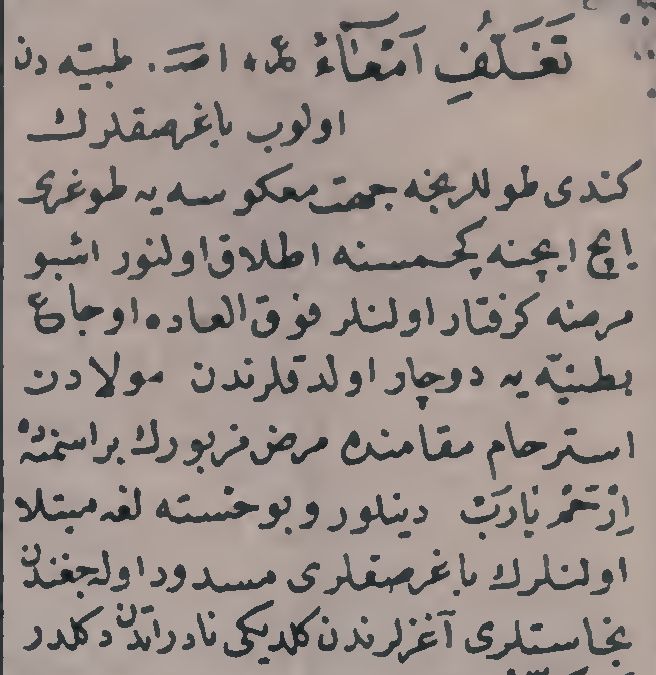 تَغَلُّفِ اَمْعَآءْ طبیّه دن
اولوب باغرصقلرك
كندی طوللرنجه جهت معكوسه یه طوغری
ایچ ایچنه كچمسنه اطلاق اولنور اشبو
مرضه كرفتار اولنلر فوق العاده اوجاع
بطنیّه یه دوچار اولدقلرندن مولادن
استرحام مقامنده مرض مزبورك بر اسمنه
اِرْحَمْ یَارَبْ دینلور و بو خسته لغه مبتلا
اولنلرك باغرصقلری مسدود اوله جغندن
نجاستلری آغزلرندن كلدیكی نادراتدن دكلدر